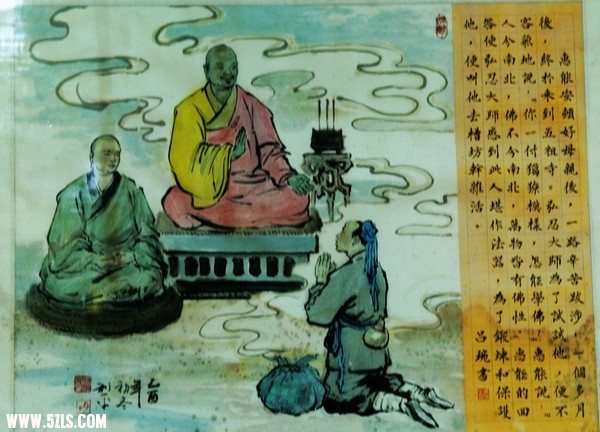 惠能安頓好母親後，一路辛苦跋涉，一個多月
後，終於來到五祖寺。弘忍大師為了試試他，便不
客氣地說：你一付獦獠模樣，怎能學佛，惠能說：
人分南北，佛不分南北，萬物皆有佛性。惠能的回
答使弘忍大師感到此人堪作法器，為了鍛煉和保護
他，便叫他去槽坊幹雜活。
呂琬書
乙酉
年初冬
WWW.5ZLS.COM